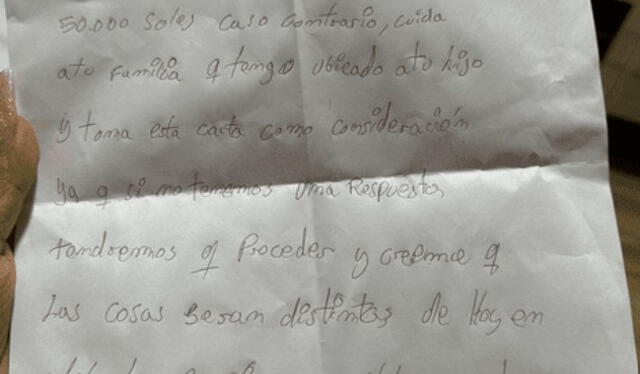 50.000 soles caso contrario, cuida
a tu familia q tengo ubicado a tu hijo
y toma esta carta como consideración
ya q si no tenemos una Respuesta
tendremos q Proceder y creeme q
Las cosas seran distintas de Hoy en